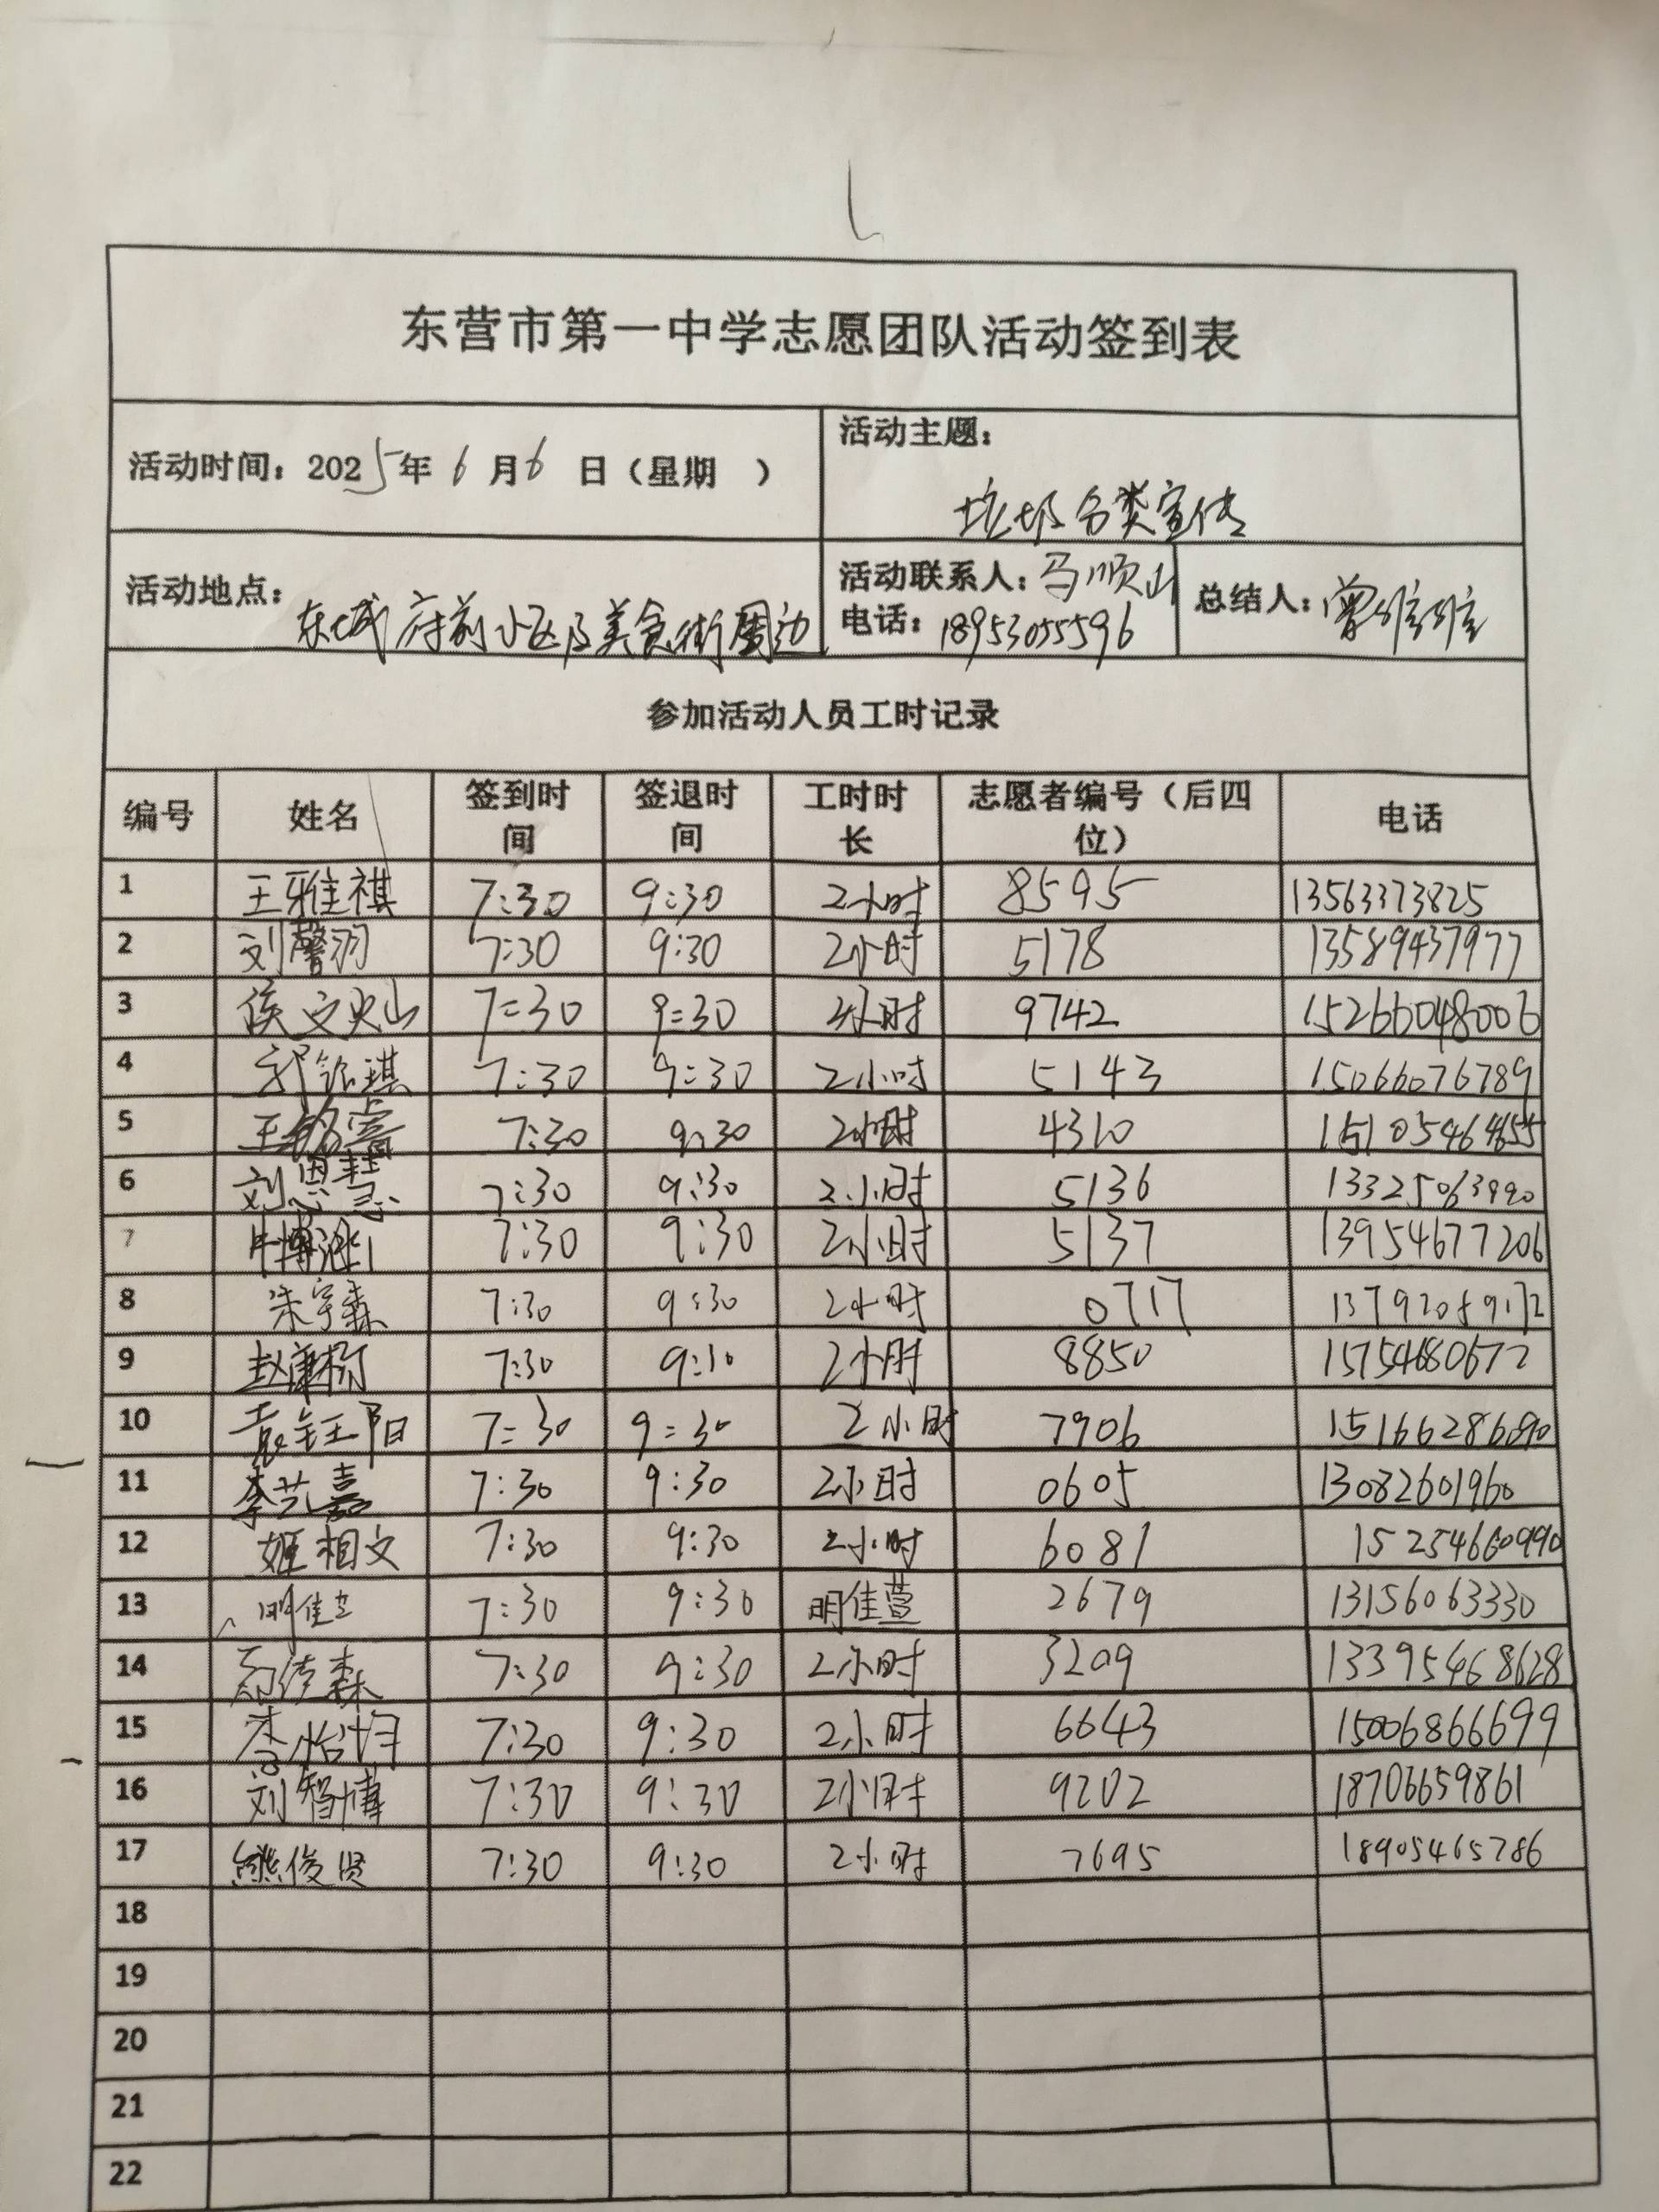 东营市第一中学志愿团队活动签到表
活动时间：2025年6月6日（星期 ）
活动主题：
垃圾分类宣传
活动地点：
东城府前小区及美食街周边
活动联系人：马顺山
电话：18953055596
总结人：曾维维
参加活动人员工时记录
编号 姓名 签到时间 签退时间 工时时长 志愿者编号（后四位） 电话
1 王雅祺 7:30 9:30 2小时 8595 13563373825
2 刘馨羽 7:30 9:30 2小时 5178 13589437977
3 侯文 7:30 9:30 2小时 9742 15266048006
4 7:30 9:30 2小时 5143 15066076789
5 王 7:30 9:30 2小时 4310
6 刘思慧 7:30 9:30 2小时 5136 13325063990
7 7:30 9:30 2小时 5137 13954677206
8 朱宇森 7:30 9:30 2小时 0717 13792059172
9 赵康 7:30 2小时 8850 15754680672
10 袁钰阳 7:30 9:30 2小时 7906 15166286090
11 李艺嘉 7:30 9:30 2小时 0605 13082601960
12 姬相文 7:30 9:30 2小时 6081 15254660990
13 明佳 7:30 9:30 明佳萱 2679 13156063330
14 7:30 9:30 2小时 3209 13395468628
15 李怡 7:30 9:30 2小时 6643 15006866699
16 刘智博 7:30 9:30 2小时 9202 18706659861
17 熊俊贤 7:30 9:30 2小时 7695 18905465786
18
19
20
21
22